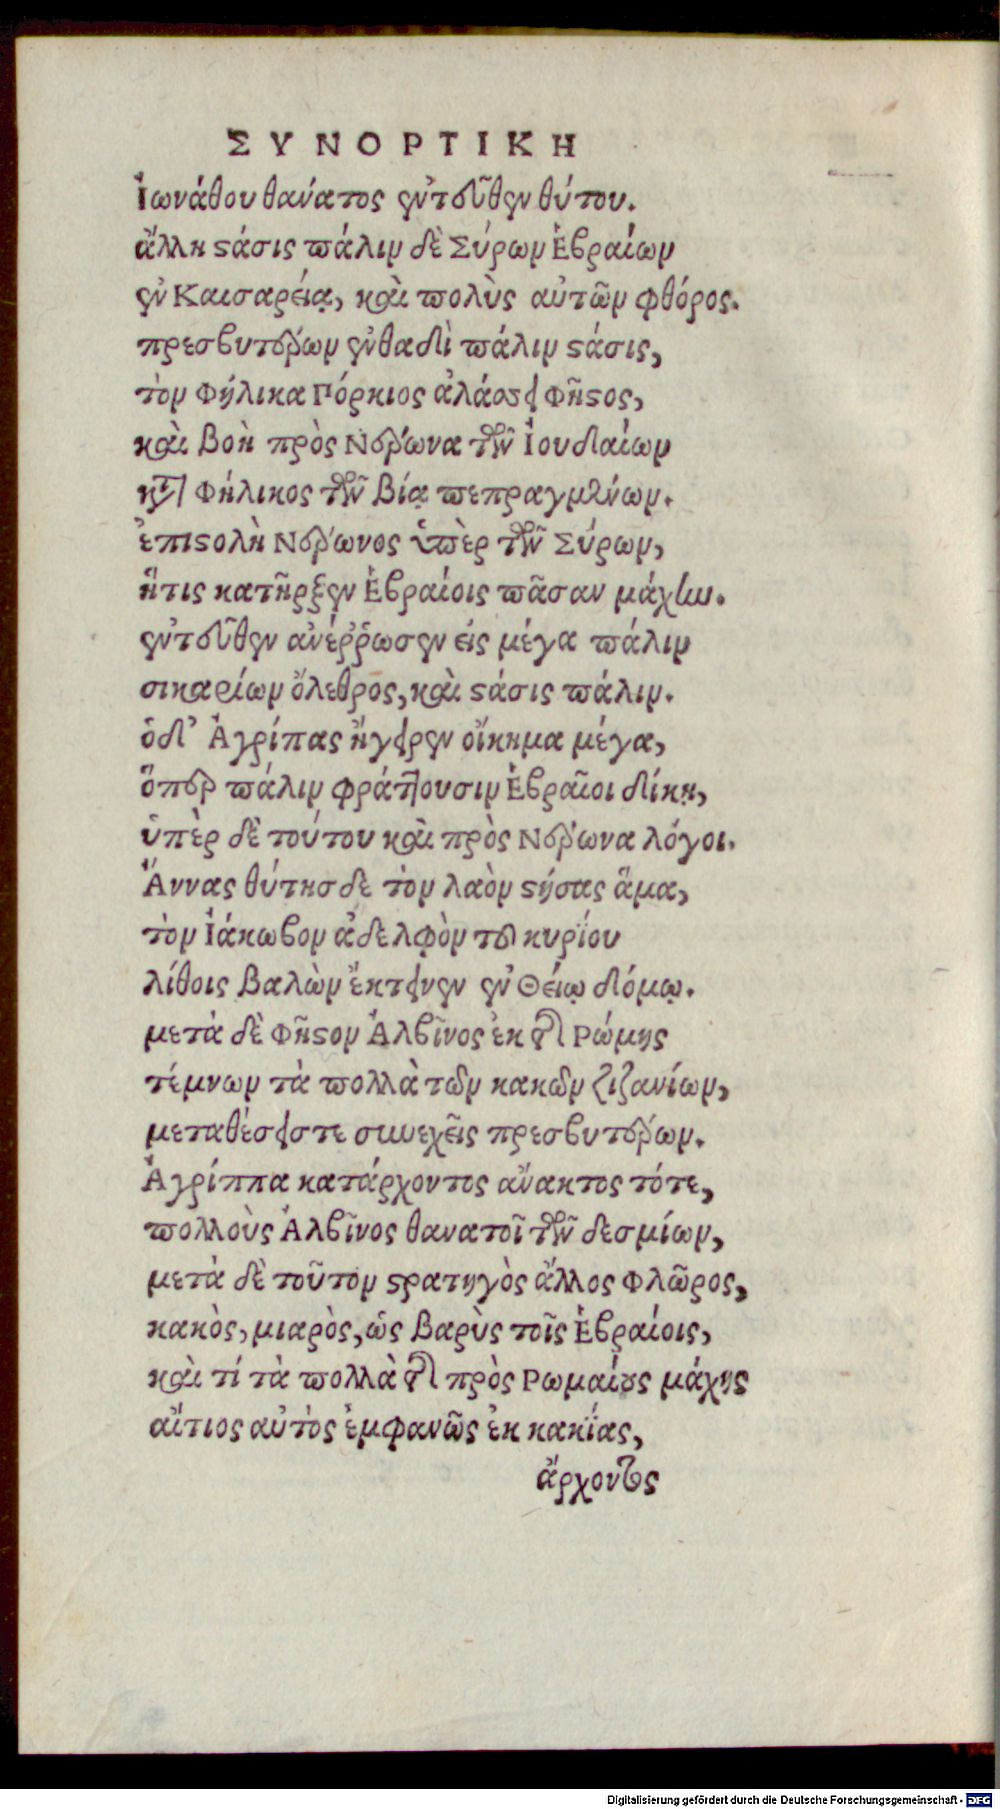 ΣΥΝΟΡΤΙΚΗ
Ἰωνάθου θανάτος ἐντεῦθεν θύτου.
ἄλλη στάσις πάλιν δὲ Σύρων Ἑβραίων
ἐν Καισαρείᾳ, καὶ πολὺς αὐτῶν φθόρος.
πρεσβυτέρων ἐνθαδὶ πάλιν στάσις,
τὸν Φήλικα Πόρκιος ἀλάσει Φῆστος,
καὶ βοὴ πρὸς Νέρωνα τῶν Ἰουδαίων
κατὰ Φήλικος τῶν βίᾳ πεπραγμένων.
ἐπιστολὴ Νέρωνος ὑπὲρ τῶν Σύρων,
ἥτις κατῆρξεν Ἑβραίοις πᾶσαν μάχην.
ἐντεῦθεν ἀνέῤῥωσεν εἰς μέγα πάλιν
σικαρίων ὄλεθρος, καὶ στάσις πάλιν.
ὁδ' Ἀγρίπας ἤγειρεν οἴκημα μέγα,
ὅπερ πάλιν φράττουσιν Ἑβραῖοι δίκῃ,
ὑπὲρ δὲ τούτου καὶ πρὸς Νέρωνα λόγοι.
Ἄννας θύτησ δε τὸν λαὸν στήσας ἅμα,
τὸν Ἰάκωβον ἀδελφὸν τοῦ κυρίου
λίθοις βαλὼν ἔκτεινεν ἐν Θείῳ δόμῳ.
μετὰ δὲ Φῆστον Ἀλβῖνος ἐκ τῆς Ρώμης
τέμνων τὰ πολλὰ τῶν κακῶν ζιζανίων,
μεταθέσεις τε συνεχεῖς πρεσβυτέρων.
Ἀγρίππα κατάρχοντος ἄνακτος τότε,
πολλοὺς Ἀλβῖνος θανατοῖ τῶν δεσμίων,
μετὰ δὲ τοῦτον στρατηγὸς ἄλλος Φλῶρος,
κακὸς, μιαρὸς, ὡς βαρὺς τοῖς Ἑβραίοις,
καὶ τί τὰ πολλὰ τῆς πρὸς Ρωμαίους μάχης
αἴτιος αὐτὸς ἐμφανῶς ἐκ κακίας,
ἄρχοντος
Digitalisierung gefördert durch die Deutsche Forschungsgemeinschaft - DFG